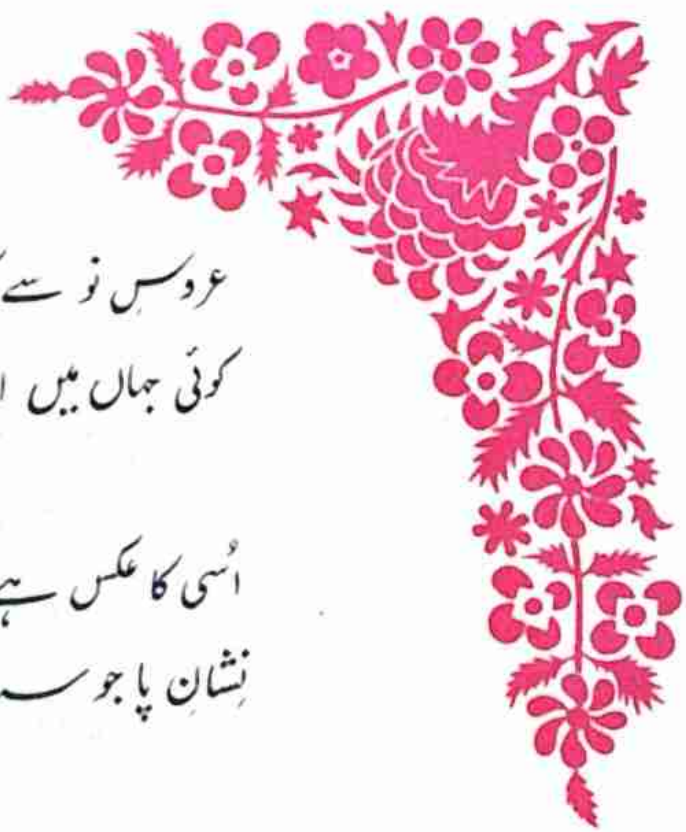 عروسِ نو سے
کوئی جہاں میں
اُسی کا عکس ہے
نِشانِ پا جو